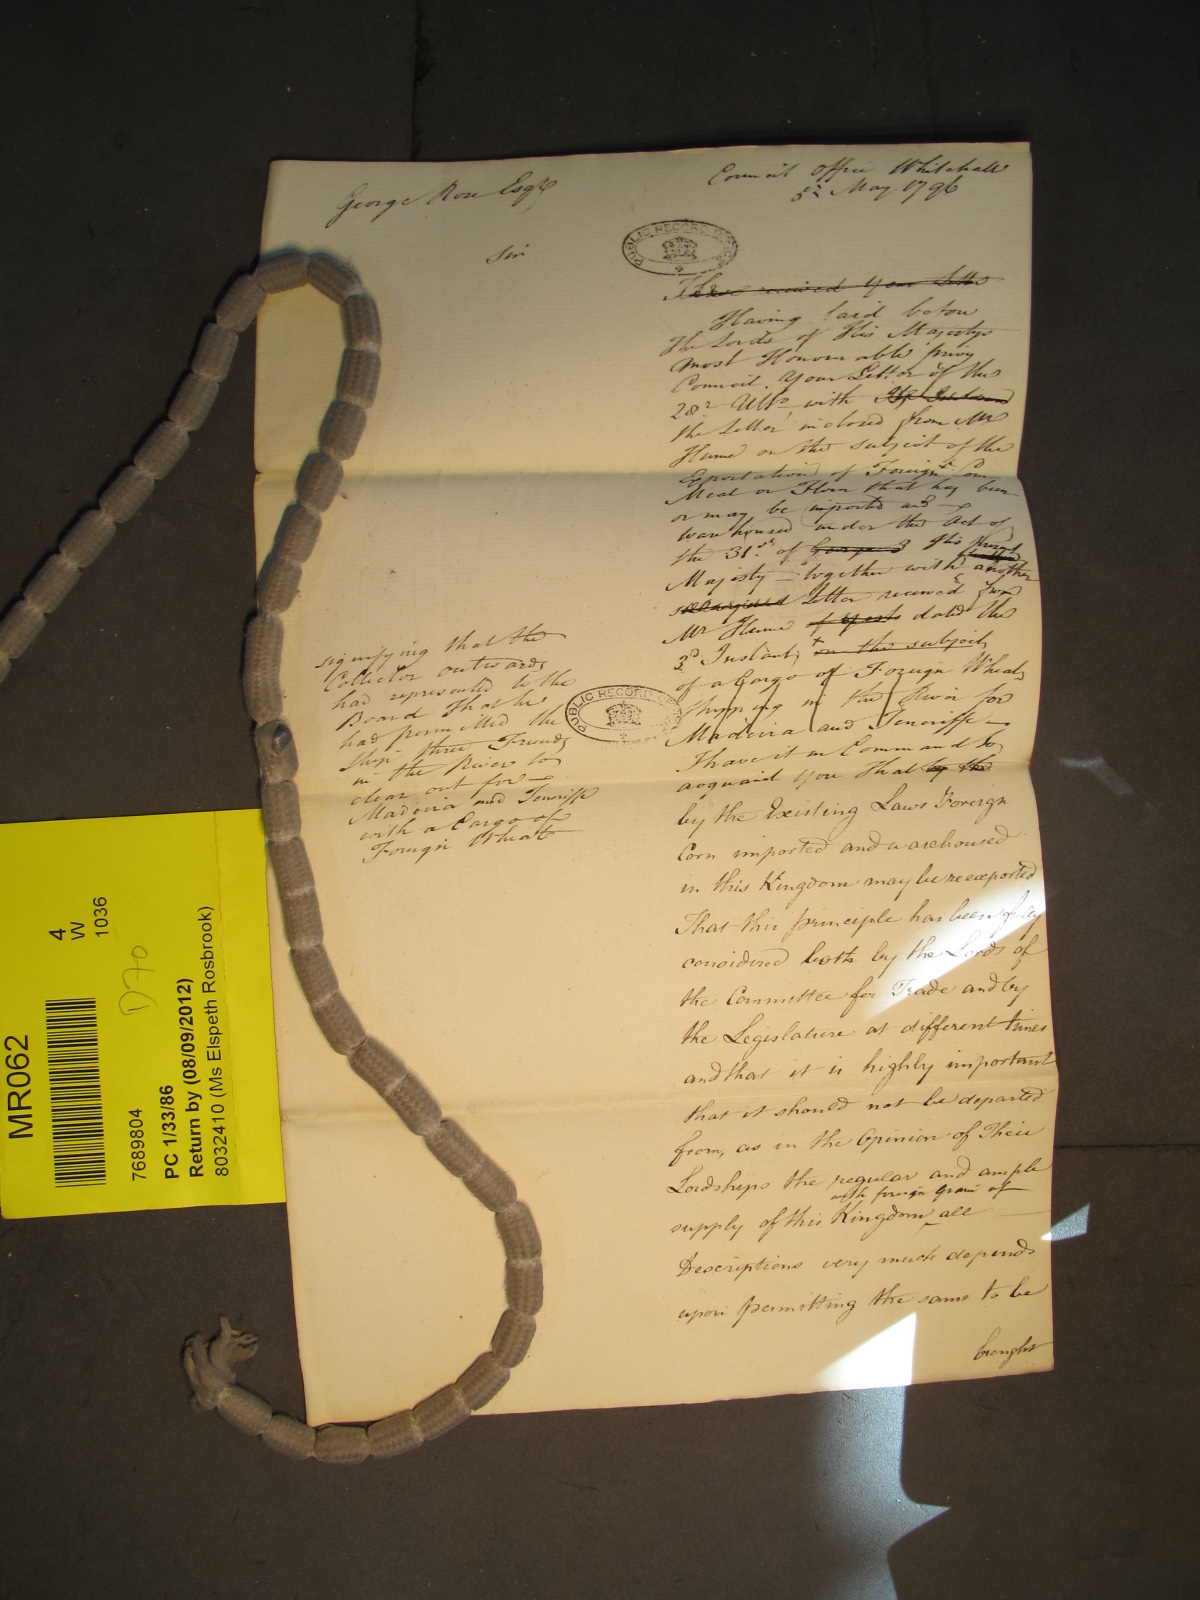 George Rose Esqr
Council Office Whitehall
5th May 1796
Sir
PUBLIC RECORD OFFICE
I have received Your Letter
Having laid before
the Lords of His Majestys
most Honourable privy
Council, Your Letter of the
28th Ulto with
the Letter inclosed from Mr
Hume on the subject of the
Exportation of Foreign Corn
Meal or Flour that has been
or may be imported and
warehoused under the Act of
the 31st of George 3 His present
Majesty – together with another
Letter received from
Mr Hume dated the
3d Instant, + on the subject
of a Cargo of Foreign Wheat,
shipping in the River for
Madeira and Teneriffe –
I have it in Command to
acquaint You That by the
by the Existing Laws Foreign
Corn imported and warehoused
in this Kingdom may be reexported
That this principle has been fully
considered both by the Lords of
the Committee for Trade and by
the Legislature at different times
and that it is highly important
that it should not be departed
from, as in the Opinion of Their
Lordships the regular and ample
with foreign Grain of
supply of this Kingdom ^ all
Descriptions very much depends
upon permitting the same to be
brought
signifying that the
Collector outwards
had represented to the
Board that he
had permitted the
Ship three Friends
in the River to
clear out for –
Madeira and Teneriffe
with a Cargo of
Foreign Wheat
PUBLIC RECORD OFFICE
MR062
4
W
1036
D70
7689804
PC 1/33/86
Return by (08/09/2012)
8032410 (Ms Elspeth Rosbrook)